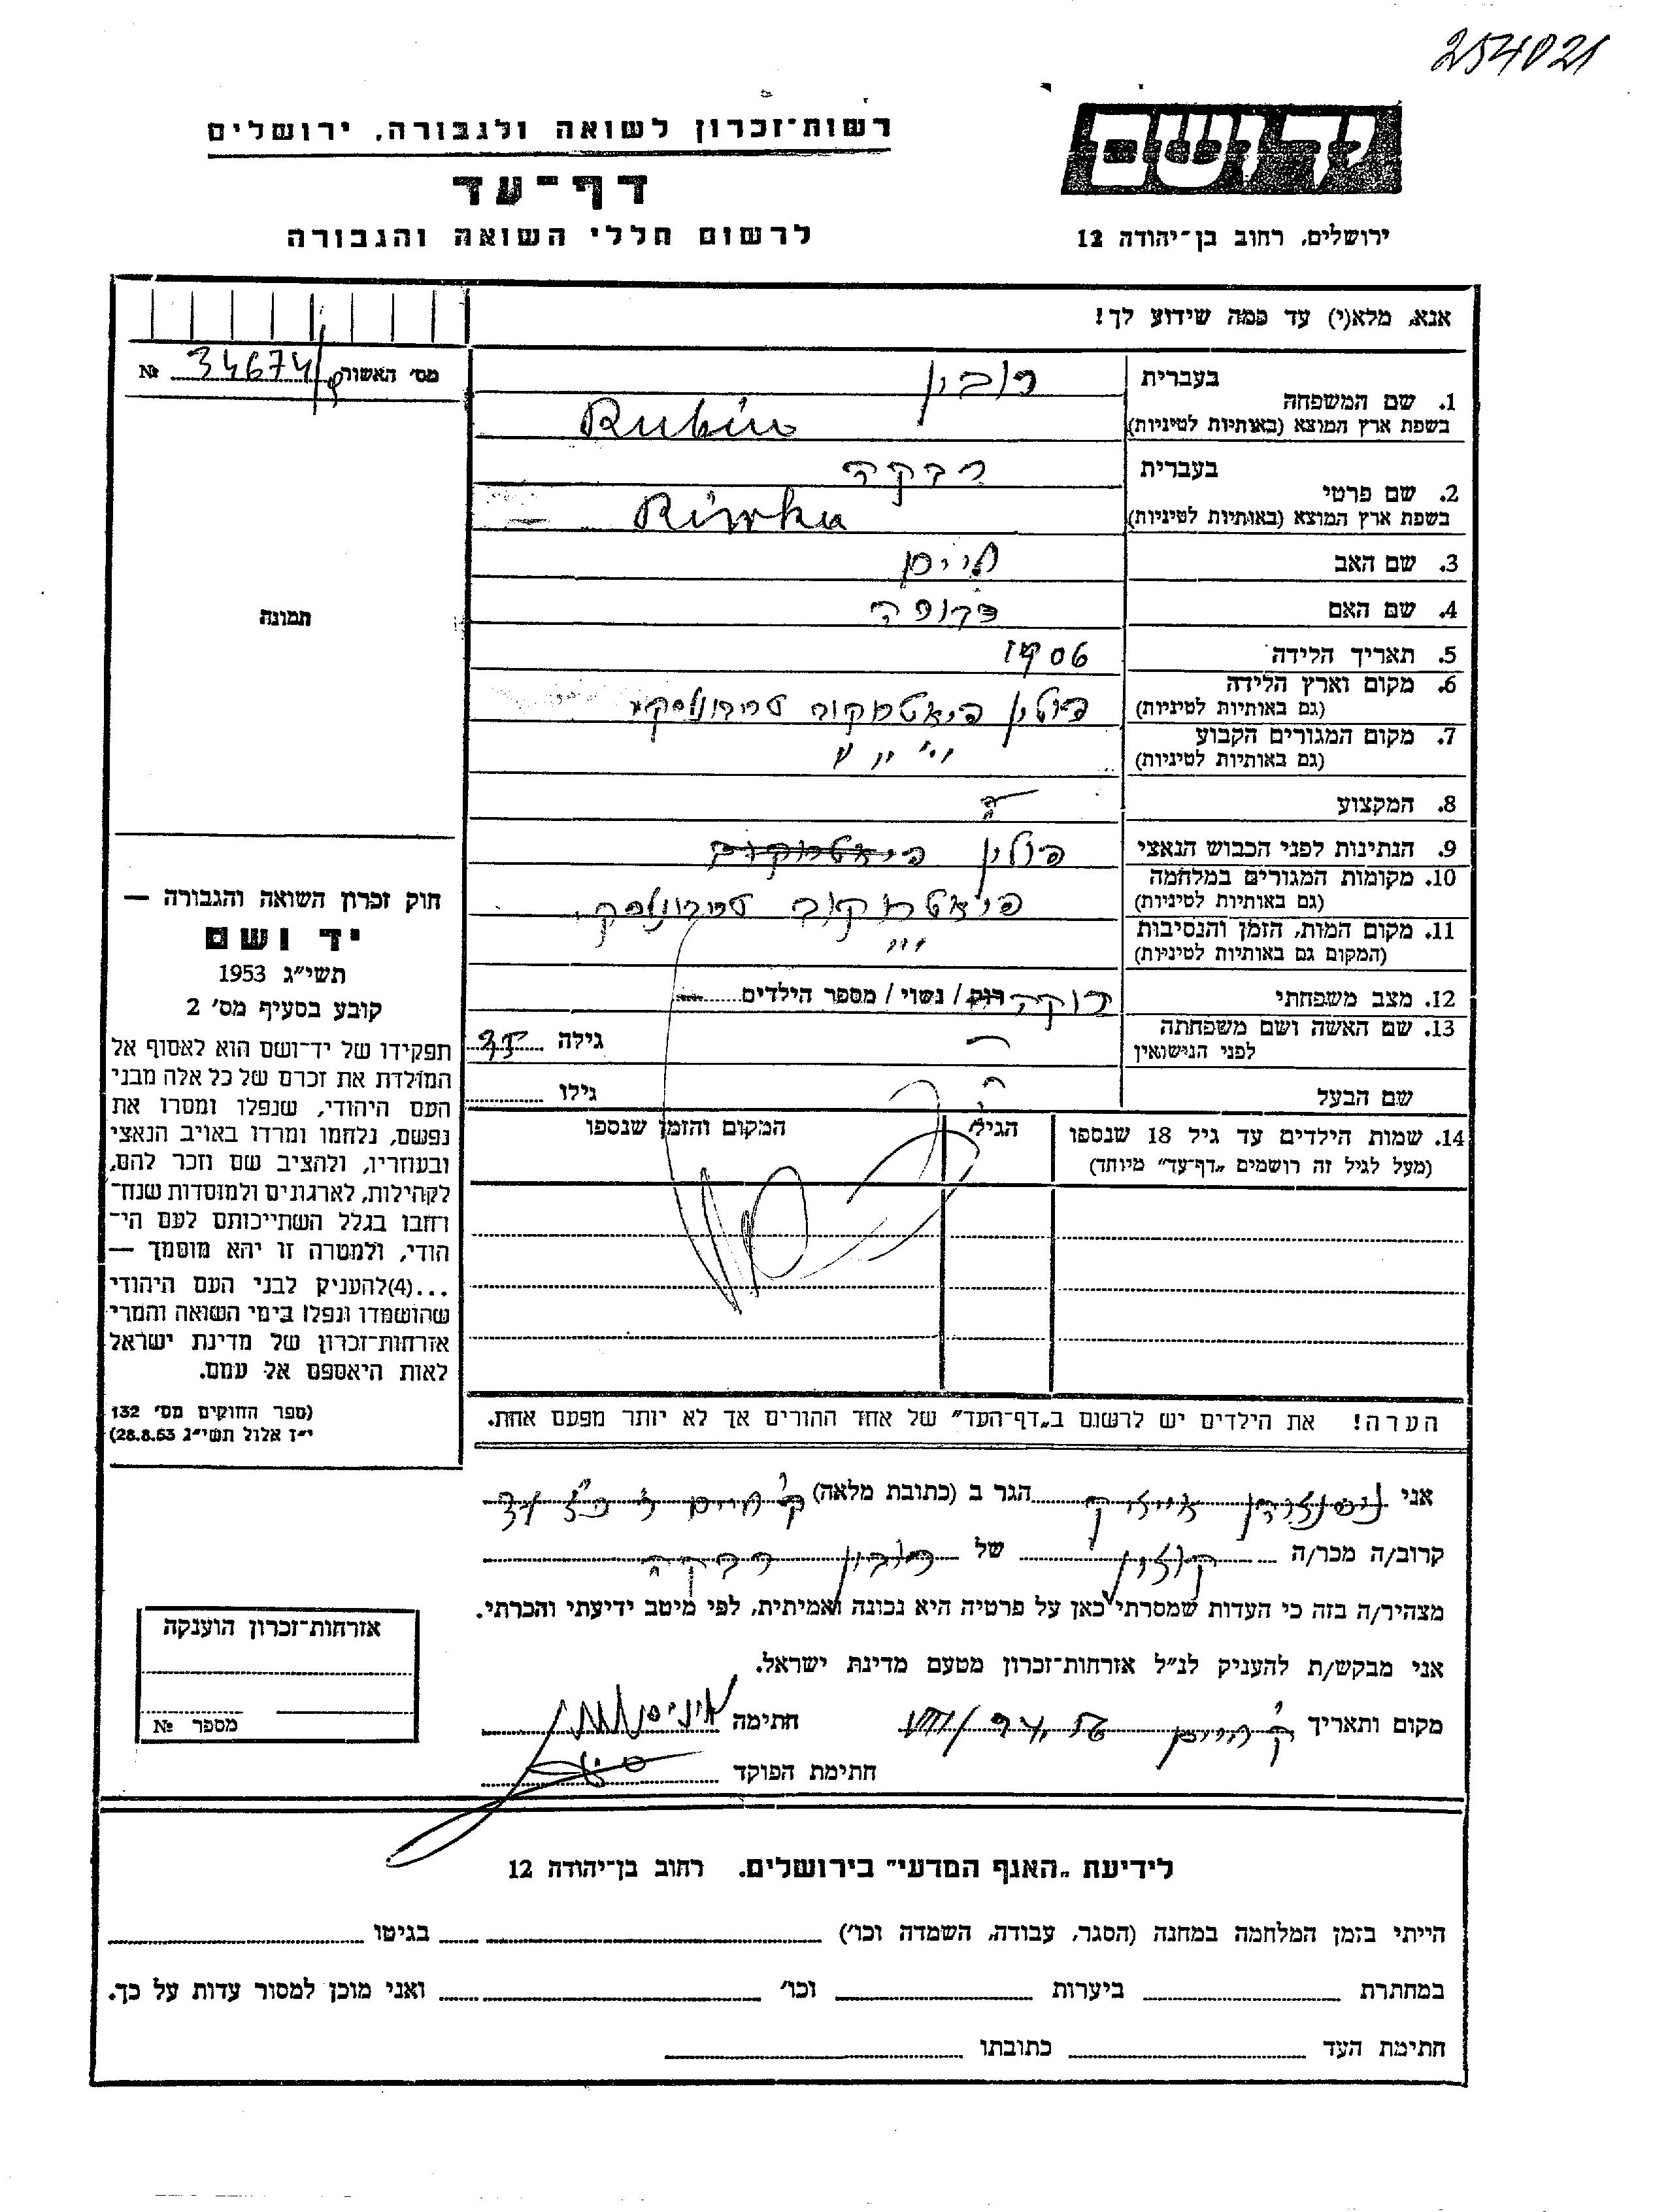 254021
יד ושם
רשות־זכרון לשואה ולגבורה, ירושלים
דף־עד
לרשום חללי השואה והגבורה
ירושלים, רחוב בן־יהודה 12
אנא, מלא(י) עד כמה שידוע לך!
מס׳ האשור 34674 №
בעברית רובין
1. שם המשפחה
בשפת ארץ המוצא (באותיות לטיניות) Rubin
בעברית רבקה
2. שם פרטי
בשפת ארץ המוצא (באותיות לטיניות) Riwka
3. שם האב חיים
4. שם האם
5. תאריך הלידה
6. מקום וארץ הלידה
(גם באותיות לטיניות) פולין פיאטרקוב טריבונלסקי
7. מקום המגורים הקבוע
(גם באותיות לטיניות)
8. המקצוע
9. הנתינות לפני הכבוש הנאצי פולין פיאטרקוב
10. מקומות המגורים במלחמה
(גם באותיות לטיניות) פיאטרקוב טריבונלסקי
11. מקום המות, הזמן והנסיבות
(המקום גם באותיות לטיניות)
12. מצב משפחתי רווקה רווק / נשוי / מספר הילדים
13. שם האשה ושם משפחתה
לפני הנישואין
גילה 35
שם הבעל
גילו
14. שמות הילדים עד גיל 18 שנספו
(מעל לגיל זה רושמים „דף־עד” מיוחד)
הגיל
המקום והזמן שנספו
תמונה
חוק זכרון השואה והגבורה —
יד ושם
תשי״ג 1953
קובע בסעיף מס׳ 2
תפקידו של יד־ושם הוא לאסוף אל
המולדת את זכרם של כל אלה מבני
העם היהודי, שנפלו ומסרו את
נפשם, נלחמו ומרדו באויב הנאצי
ובעוזריו, ולהציב שם וזכר להם,
לקהילות, לארגונים ולמוסדות שנח־
רחבו בגלל השתייכותם לעם הי־
הודי, ולמטרה זו יהא מוסמך —
...(4)להעניק לבני העם היהודי
שהושמדו ונפלו בימי השואה והמרי
אזרחות־זכרון של מדינת ישראל
לאות היאספם אל עמם.
(ספר החוקים מס׳ 132
י״ז אלול תשי״ג 28.8.53)
הערה! את הילדים יש לרשום ב„דף־העד” של אחד ההורים אך לא יותר מפעם אחת.
אני אייזיק הגר ב (כתובת מלאה) ק׳ חיים
קרוב/ה מכר/ה של רובין רבקה
מצהיר/ה בזה כי העדות שמסרתי כאן על פרטיה היא נכונה ואמיתית, לפי מיטב ידיעתי והכרתי.
אני מבקש/ת להעניק לנ״ל אזרחות־זכרון מטעם מדינת ישראל.
מקום ותאריך ק׳ חיים חתימה
חתימת הפוקד
אזרחות־זכרון הוענקה
מספר №
לידיעת „האגף המדעי” בירושלים. רחוב בן־יהודה 12
הייתי בזמן המלחמה במחנה (הסגר, עבודה, השמדה וכו׳) בגיטו
במחתרת ביערות וכו׳ ואני מוכן למסור עדות על כך.
חתימת העד כתובתו